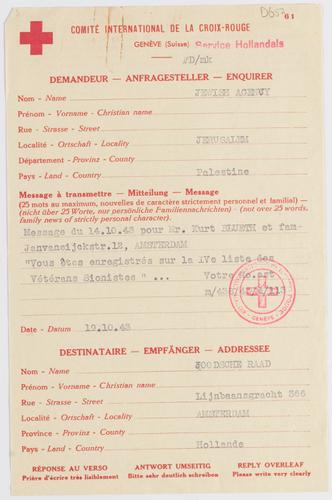 D653 61
COMITÉ INTERNATIONAL DE LA CROIX-ROUGE
GENÈVE (Suisse) Service Hollandais
#D/mk
DEMANDEUR — ANFRAGESTELLER — ENQUIRER
Nom - Name JEWISH AGENUY
Prénom - Vorname - Christian name
Rue - Strasse - Street
Localité - Ortschaft - Locality JERUSALEM
Département - Provinz - County
Pays - Land - Country Palestine
Message à transmettre — Mitteilung — Message
(25 mots au maximum, nouvelles de caractère strictement personnel et familial) —
(nicht über 25 Worte, nur persönliche Familiennachrichten) — (not over 25 words,
family news of strictly personal character).
Message du 14.10.43 pour Mr. Kurt BLUETH et fam-
Janvaneijckstr.12, AMSTERDAM
"Vous êtes enregistrés sur la IVe liste des
Vétérans Sionistes " ... Votre No.art
GENÈVE
Date - Datum 19.10.43
DESTINATAIRE — EMPFÄNGER — ADDRESSEE
Nom - Name JOODSCHE RAAD
Prénom - Vorname - Christian name
Rue - Strasse - Street Lijnbaansgracht 366
Localité - Ortschaft - Locality AMSTERDAM
Province - Provinz - County
Pays - Land - Country Hollande
RÉPONSE AU VERSO ANTWORT UMSEITIG REPLY OVERLEAF
Prière d'écrire très lisiblement Bitte sehr deutlich schreiben Please write very clearly